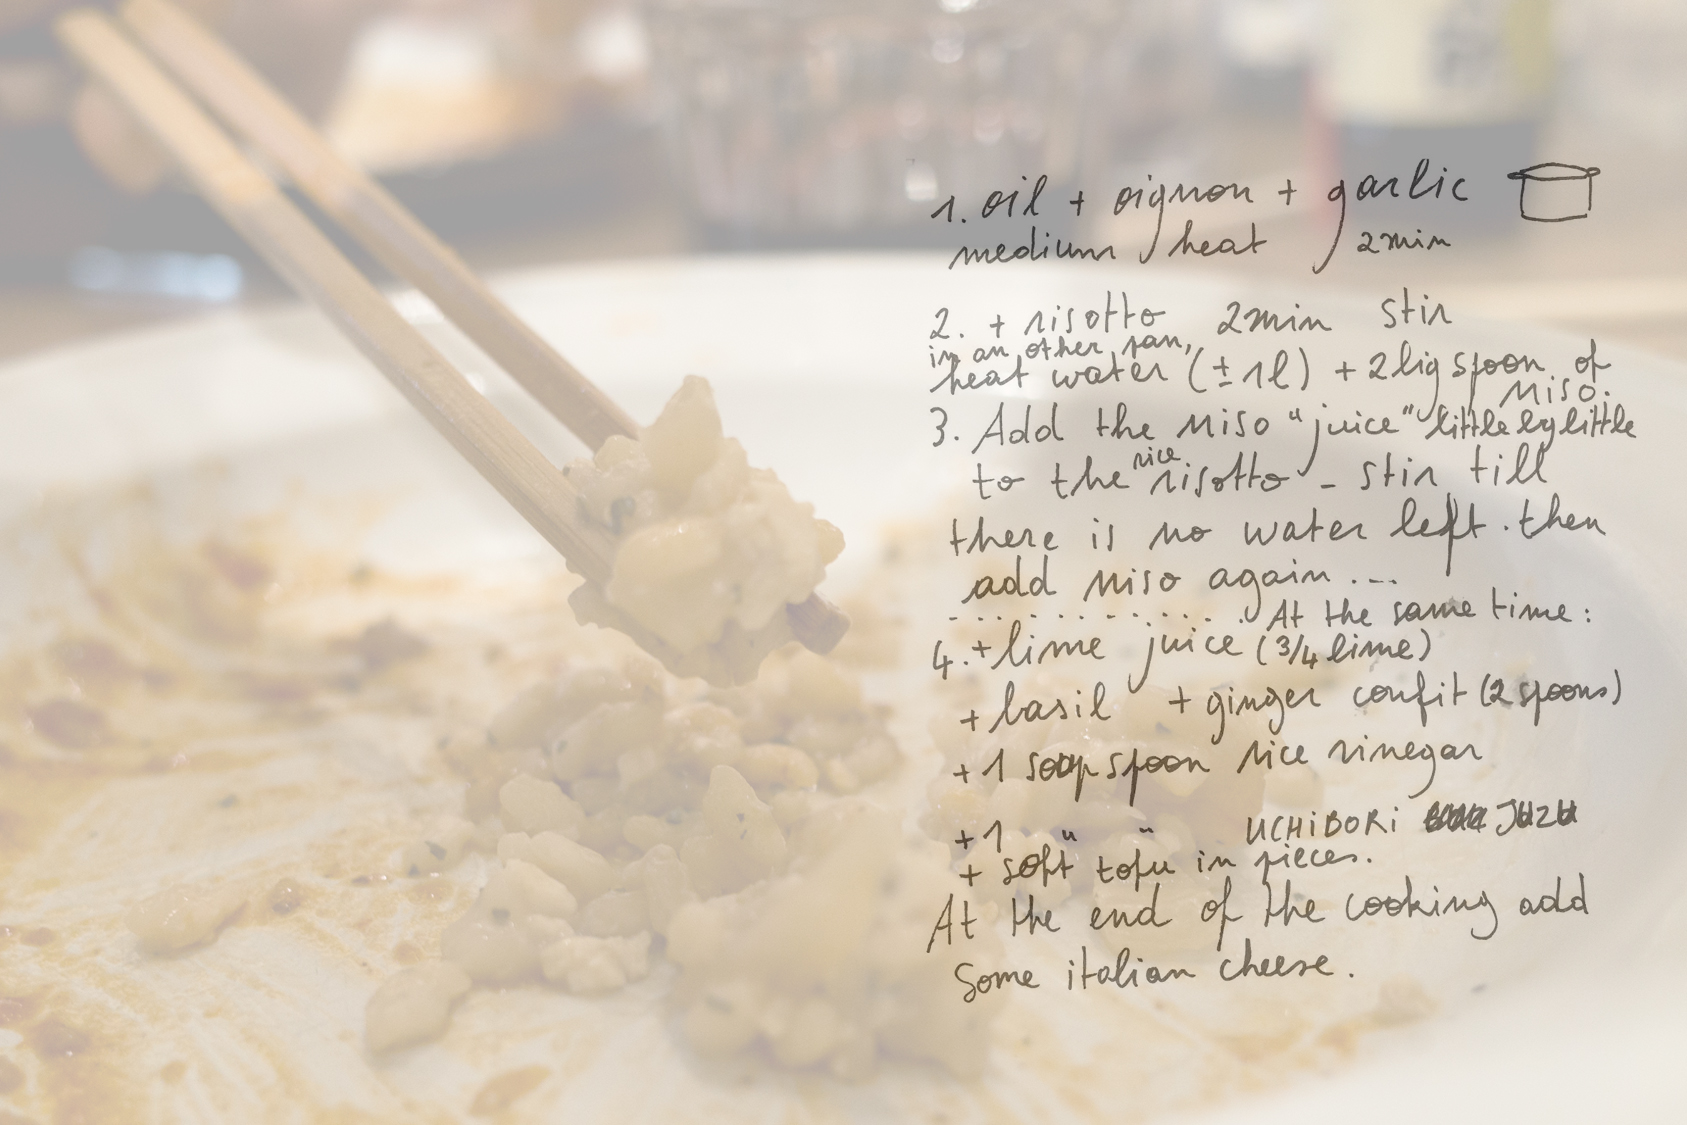 1. oil + oignon + garlic
medium heat 2min
2. + risotto 2min stir
in an other pan,
heat water (± 1l) + 2 big spoon of
miso.
3. Add the miso "juice" little by little
to the rice risotto - stir till
there is no water left. then
add miso again ...
. . . . . . . . . . . . At the same time:
4. + lime juice (3/4 lime)
+ basil + ginger confit (2 spoons)
+ 1 soup spoon rice vinegar
+ 1 " " UCHiBORi JUZU
+ soft tofu in pieces.
At the end of the cooking add
some italian cheese.